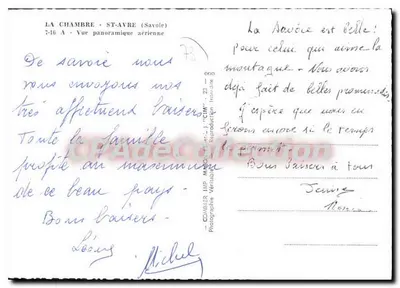 LA CHAMBRE - ST-AVRE (Savoie)
7-16 A - Vue panoramique aérienne
De savoie nous
vous envoyons nos
très affectueux baisers
Toute la famille
profite au maximum
de ce beau pays.
Bons baisers.
Michel
COMBIER IMP. MACON
"CIM"
La Savoie est belle!
pour celui qui aime la
montagne. Nous avons
déjà fait de belles promenades
J'espère que nous en
ferons encore si le temps
le permet.
Bons baisers à tous